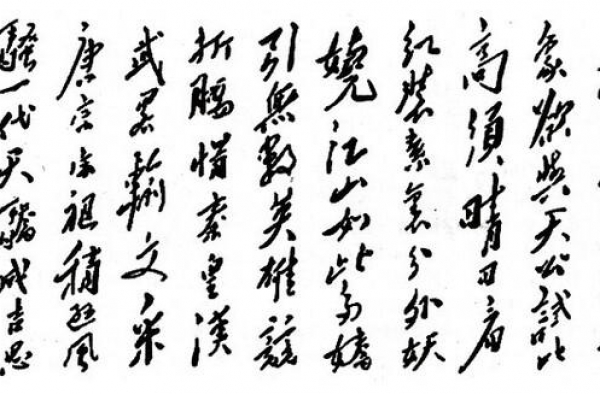 象欲與天公試比
高須晴日看
紅裝素裹分外妖
嬈江山如此多嬌
引無數英雄競
折腰惜秦皇漢
武畧輸文采
唐宗宋祖稍遜風
騷一代天驕成吉思